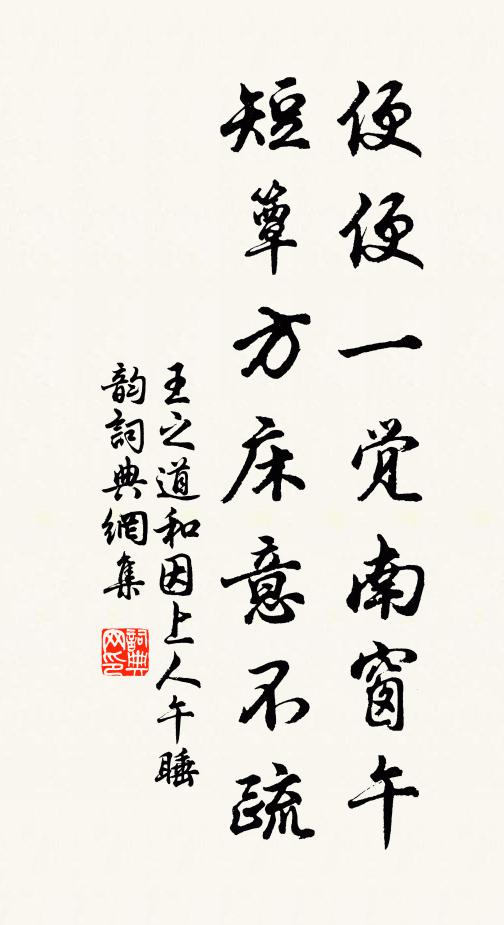 便便一觉南窗午
短簟方床意不疏
王之道和因上人午睡
韵詞典網集
詞典网印